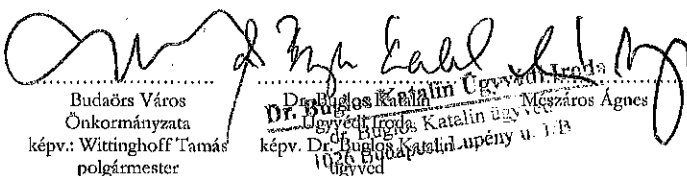 Budaörs Város
Önkormányzata
képv.: Wittinghoff Tamás
polgármester
Dr. Buglos Katalin
Ügyvédi Iroda
képv. Dr. Buglos Katalin
ügyvéd
Mészáros Ágnes
Dr. Buglos Katalin Ügyvédi Iroda
dr. Buglos Katalin ügyvéd
1026 Budapest